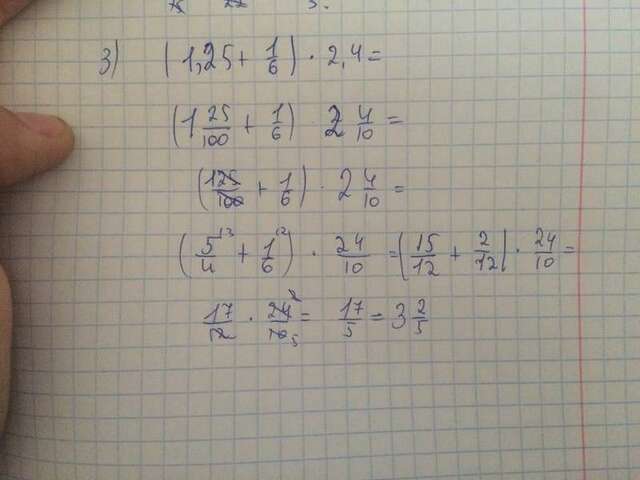 3) (1,25 + 1/6) · 2,4 =
(1 25/100 + 1/6) · 2 4/10 =
(125/100 + 1/6) · 2 4/10 =
(5/4 + 1/6) · 24/10 = (15/12 + 2/12) · 24/10 =
17/12 · 24/10 = 17/5 = 3 2/5